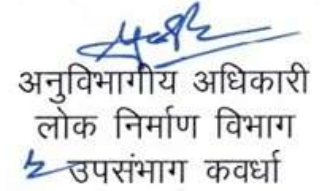 अनुविभागीय अधिकारी
लोक निर्माण विभाग
उपसंभाग कवर्धा